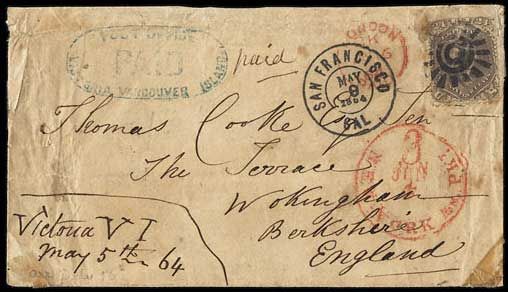 POST OFFICE
PAID
VICTORIA, VANCOUVER ISLAND
paid
LONDON
SAN FRANCISCO
MAY
9
1864
CAL
Thomas Cooke Sen
The Terrace
Wokingham
Berkshire
England
NEW YORK PKT
3
JUN
Victoria V I
May 5th 64